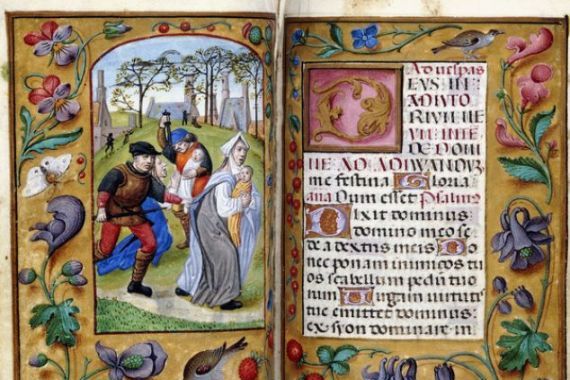 Ad vespas
DEVS IN
ADIVTO
RIVM ME
VM INTE
DE DOMI
NE AD ADIVVANDVM
me festina Gloria
ana Dum esset Psalmus
Dixit dominus
domino meo se
de a dextris meis Do
nec ponam inimicos tu
os scabellum pedum tuo
rum Virgam virtutis
tue emittet dominus
ex syon dominare in